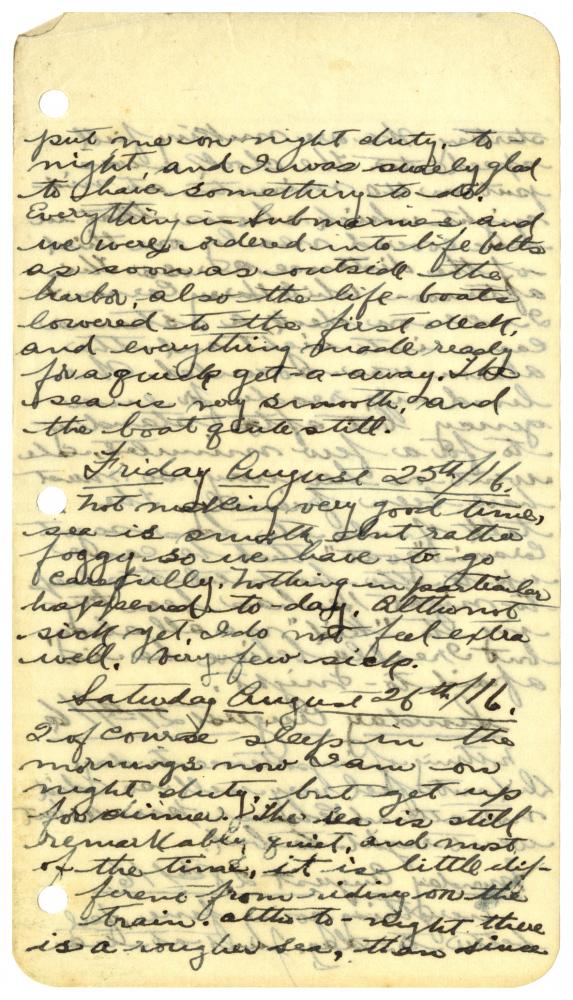 put me on night duty, to
night, and I was surely glad
to have something to do.
Everything is Submarines and
we were ordered into life belts
as soon as outside the
harbor, also the life-boats
lowered to the first deck,
and everything made ready
for a quick get-a-away. The
sea is very smooth, and
the boat quite still.
Friday August 25th/16.
Not making very good time,
sea is smooth but rather
foggy so we have to go
carefully. Nothing in particular
happened to-day. Altho not
sick yet, I do not feel extra
well. Very few sick.
Saturday August 26th/16.
I of course sleep in the
mornings now I am on
night duty, but get up
for dinner. The sea is still
remarkably quiet, and most
of the time, it is little dif-
ferent from riding on the
train. altho to-night there
is a rougher sea, than since